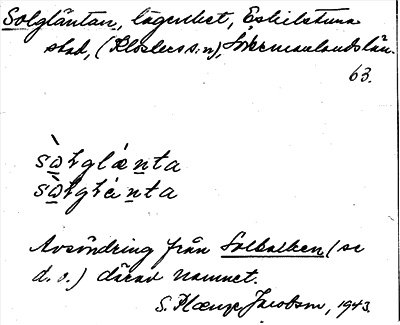 Solgläntan, lägenhet, Eskilstuna
stad, (Klosters s:n), Södermanlands län.
63.
sò̱ɫglǽn̲ta
sò̱ɫgɫæ̀n̲ta
Avsöndring från Solbacken (se
d. o.) därav namnet.
S. Jacobson, 1943.